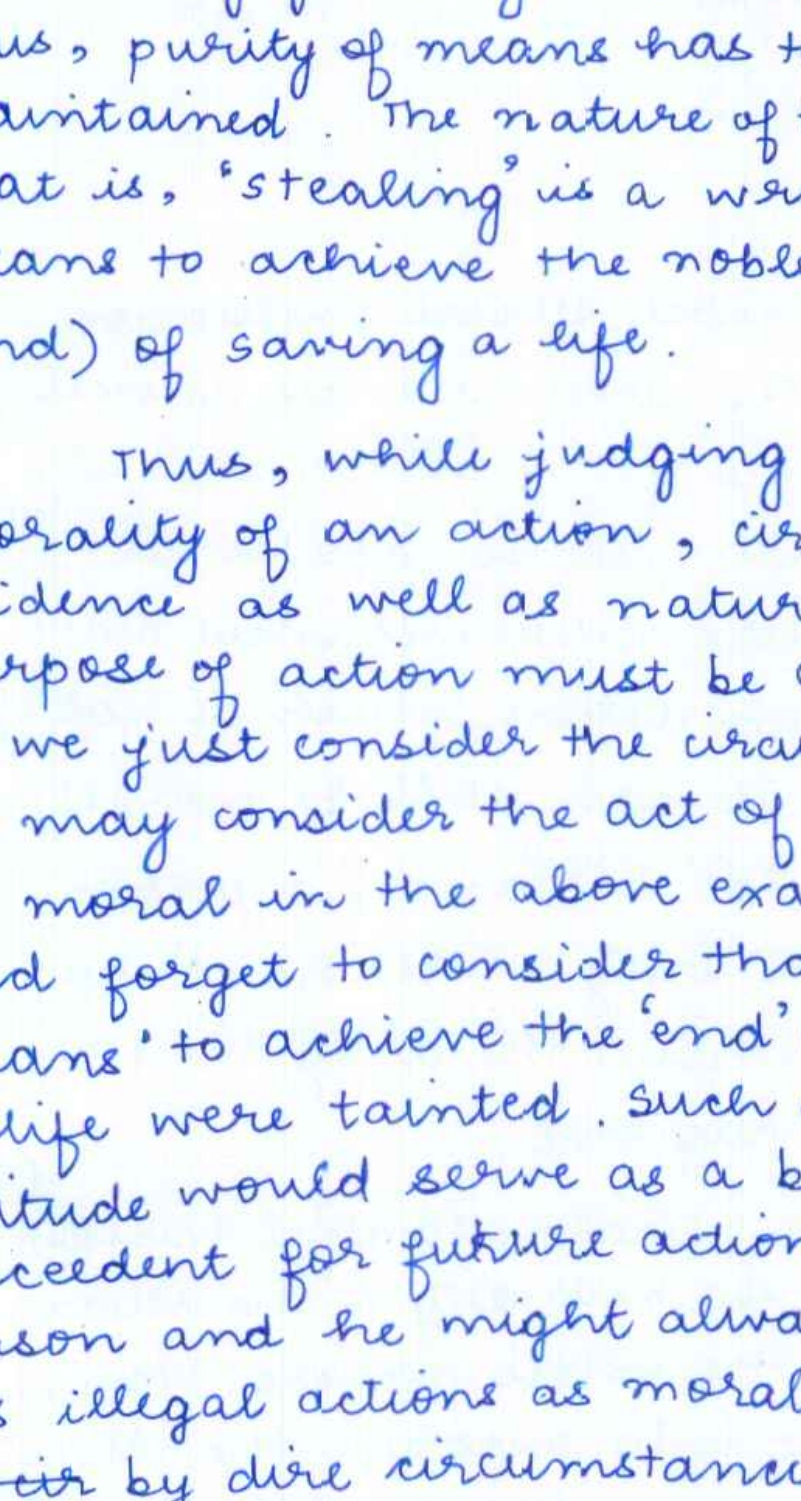 us, purity of means has t
aintained. The nature of
at is, 'stealing' is a wr
eans to achieve the noble
nd) of saving a life.
Thus, while judging
orality of an action, cir
idence as well as natur
rpose of action must be
we just consider the circu
may consider the act of
moral in the above exa
d forget to consider tha
eans' to achieve the 'end'
life were tainted. Such
itude would serve as a b
ceedent for future action
son and he might alwa
s illegal actions as moral
cir by dire circumstanc